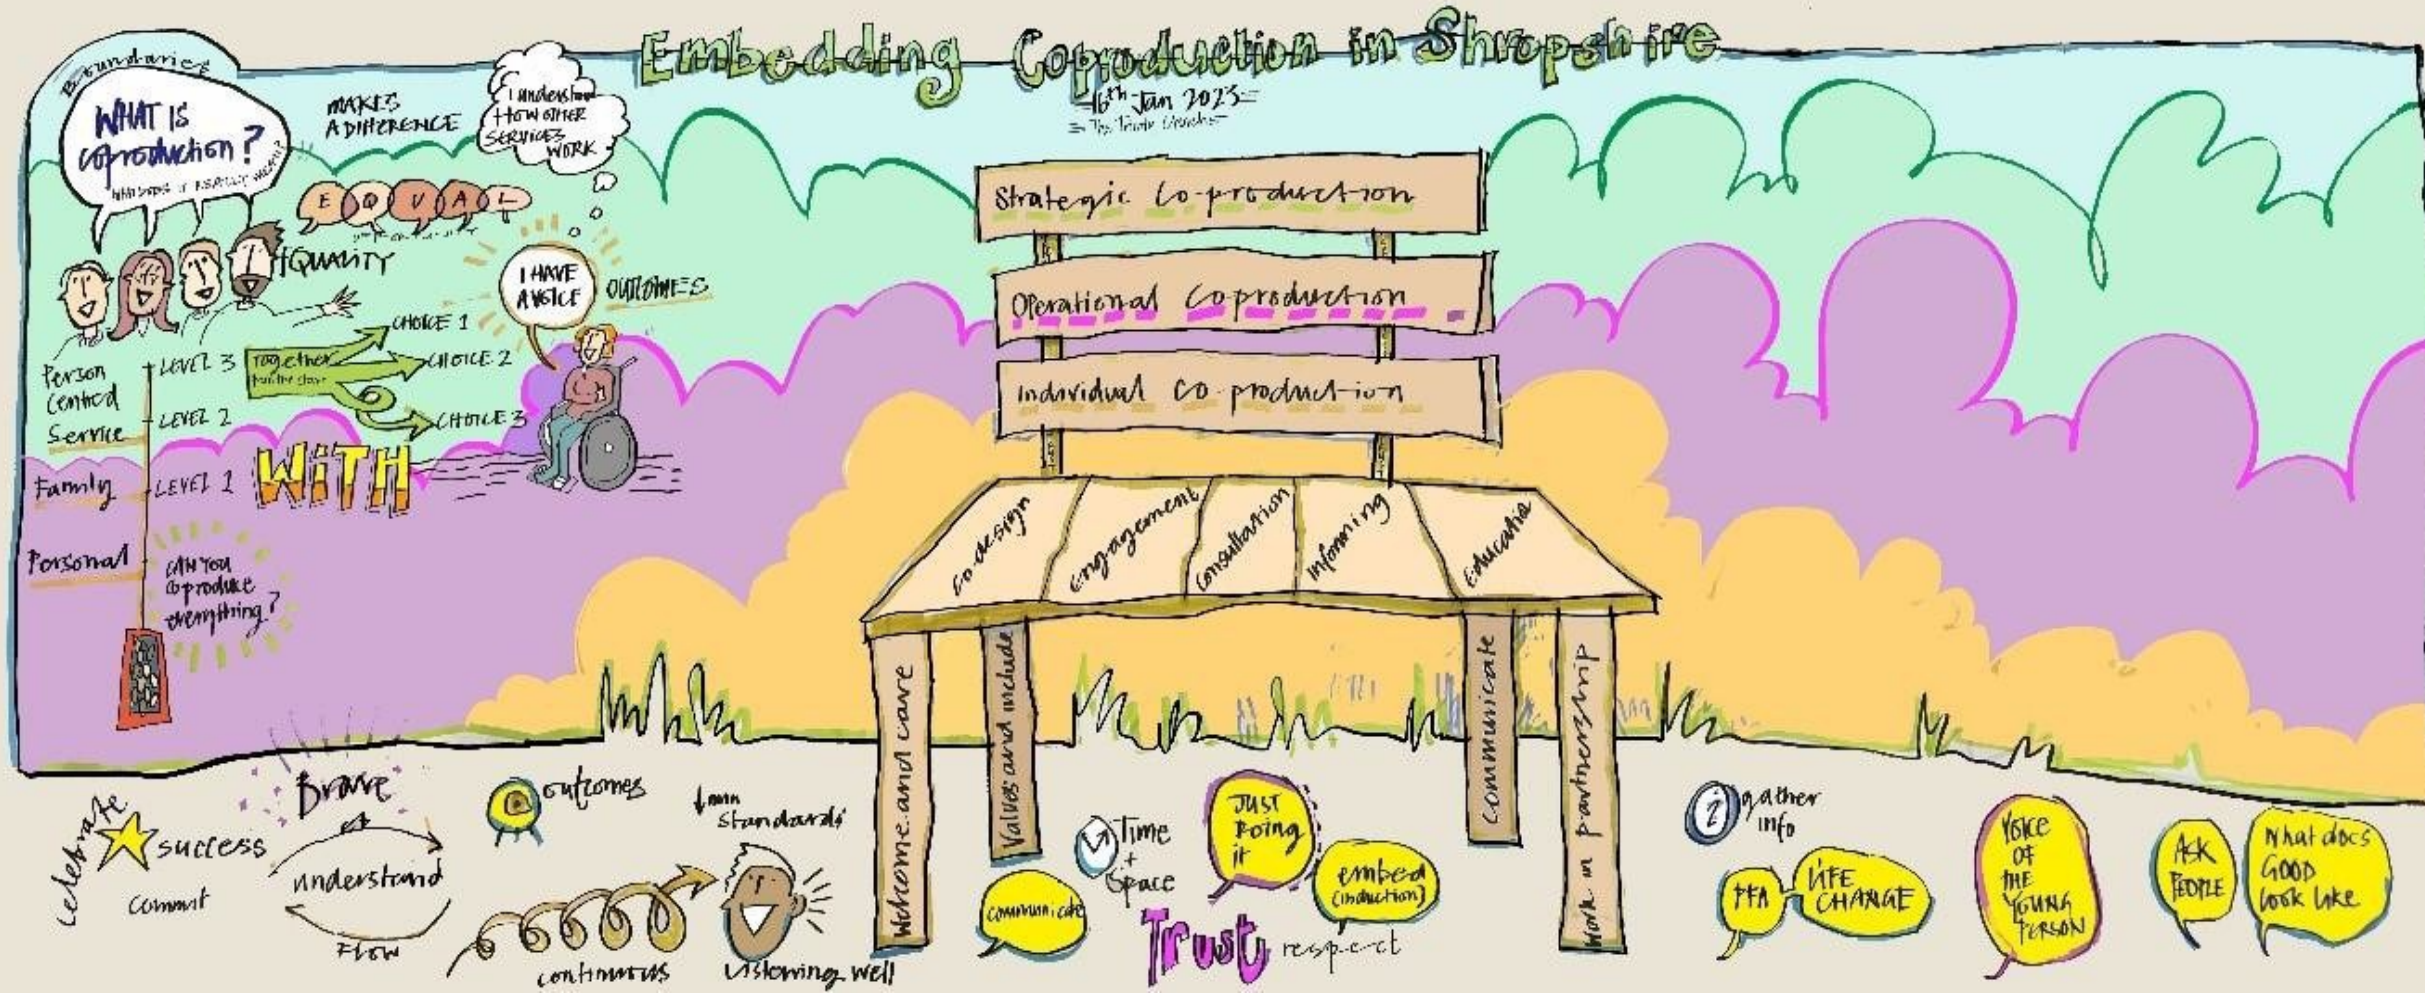 Embedding Coproduction in Shropshire
16th Jan 2023
The
Boundaries
WHAT IS
coproduction?
WHAT DOES IT REALLY MEAN?
MAKES
A DIFFERENCE
I understand
HOW OTHER
SERVICES
WORK
EQUAL
+QUALITY
I HAVE
A VOICE
OUTCOMES
Person
Centred
Service
Family
Personal
LEVEL 3
LEVEL 2
LEVEL 1
Together
CHOICE 1
CHOICE 2
CHOICE 3
WITH
CAN YOU
coproduce
everything?
Strategic Co-production
Operational Coproduction
Individual co-production
co-design
engagement
consultation
informing
Educatio
Welcome and care
Values and include
communicate
Work in partnership
celebrate
success
commit
Brave
understand
FLOW
outcomes
min
standards
continuous
Listening well
communicate
Time
+
Space
JUST
Doing
it
embed
(induction)
Trust
respect
i
gather
info
PFA
LIFE
CHANGE
VOICE
OF
THE
YOUNG
PERSON
ASK
PEOPLE
What does
GOOD
look like